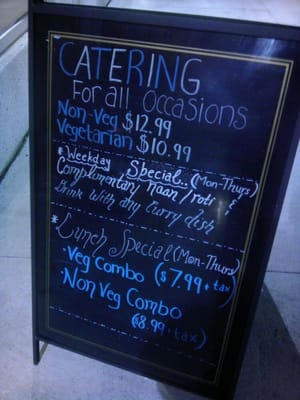 CATERING
For all Occasions
Non-Veg $12.99
Vegetarian $10.99
* Weekday Special (Mon-Thurs)
Complimentary Naan/roti &
Drink with any curry dish
* Lunch Special (Mon-Thurs)
• Veg Combo ($7.99 + tax)
• Non Veg Combo
($8.99 + tax)